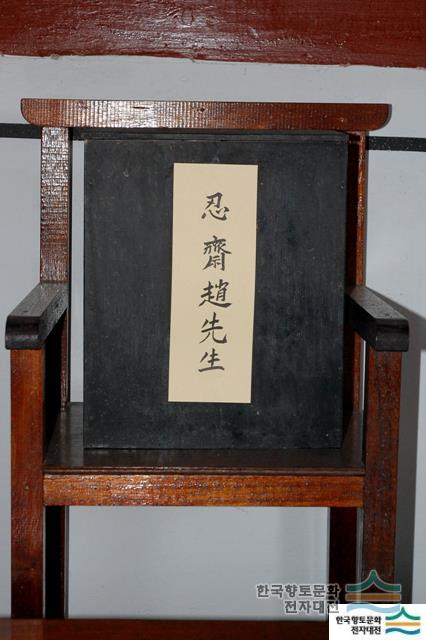 忍齋趙先生
한국향토문화
전자대전
한국향토문화
전자대전